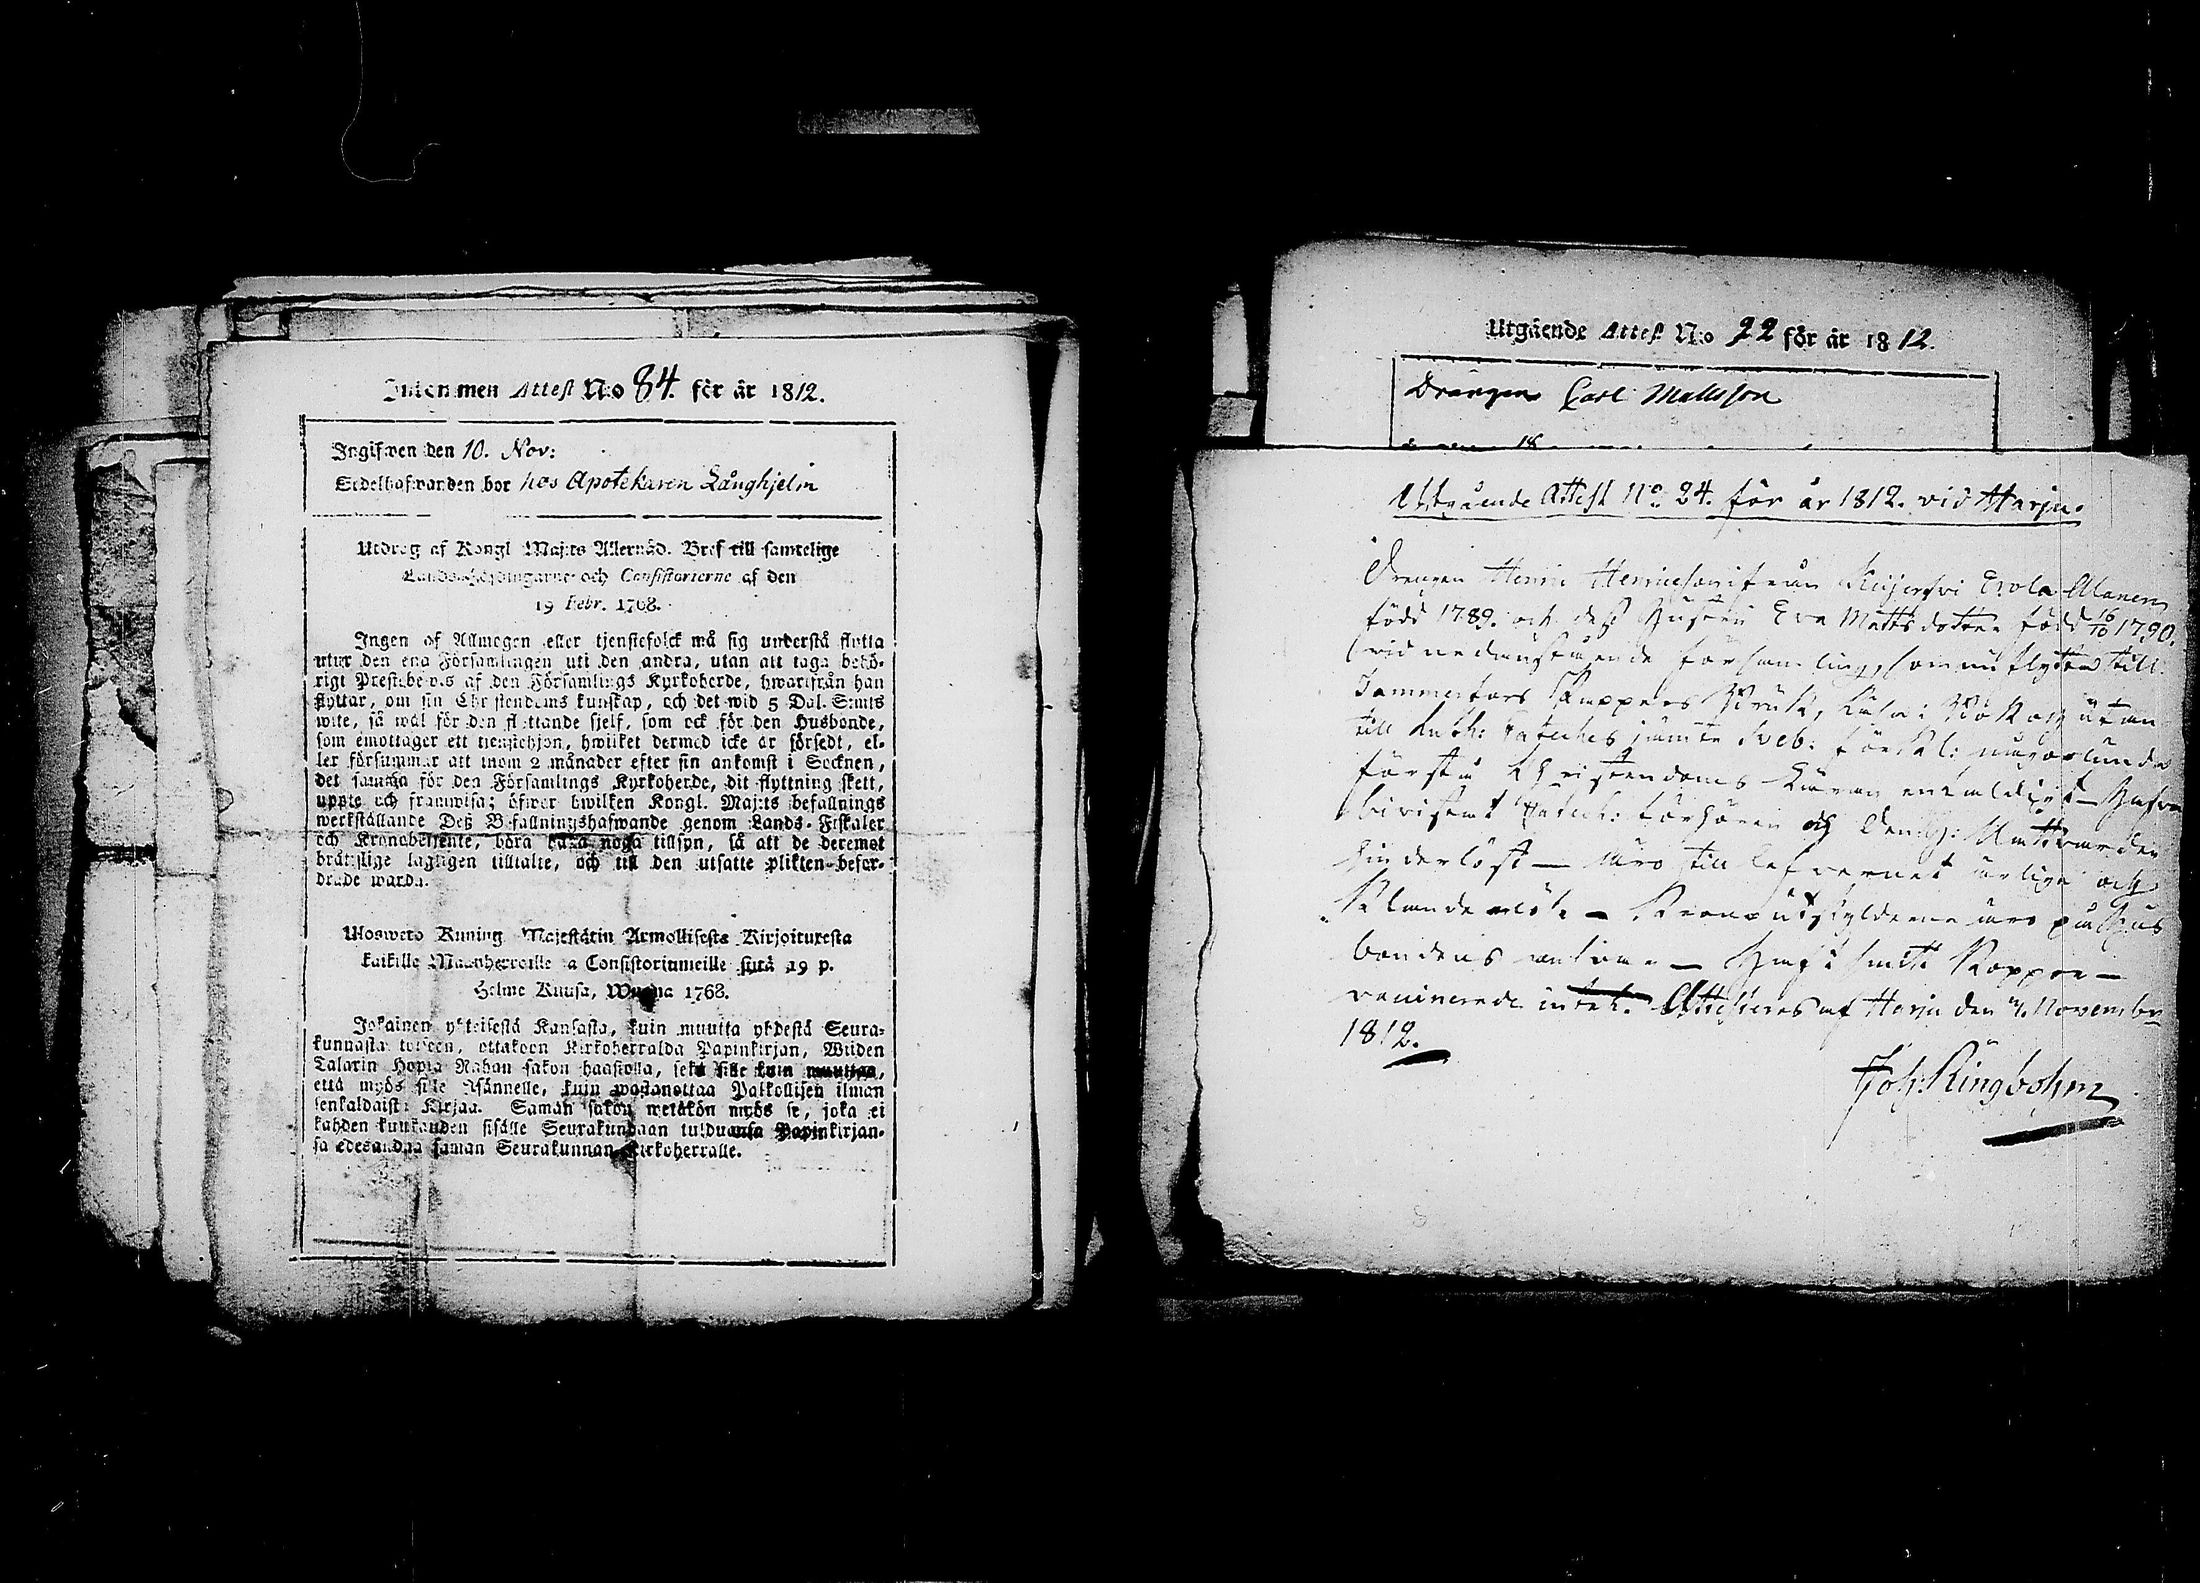 Inkommen Attest No 84. för år 1812.
Ingifwen den 10. Nov:
Sedelhafwanden bor hos Apotekaren Långhjelm
Utdrag af Kongl. Maj:ts Allernåd. Bref till samtelige
Lands-Höfdingarne och Consistorierne af den
19 Febr. 1768.
Ingen af Allmogen eller tjenstefolck må sig understå flytta
utur den ena Församlingen uti den andra, utan att taga behö-
rigt Prestebevis af den Församlings Kyrkoherde, hwarifrån han
flyttar, om sin Christendoms kunskap, och det wid 5 Dal. S:mts
wite, så wäl för den flyttande sjelf, som ock för den Husbonde,
som emottager ett tienstehjon, hwilket dermed icke är försedt, el-
ler försummar att inom 2 månader efter sin ankomst i Socknen,
det samma för den Församlings Kyrkoherde, dit flyttning skett,
uppte och framwisa; öfwer hwilken Kongl. Maj:ts befallnings
werkställande Deß Befallningshafwande genom Lands-Fiskaler
och Kronobetjente, böra hafwa noga tillsyn, så att de deremot
brätslige lagligen tilltalte, och till den utsatte plikten befor-
drade warda.
Ulosweto Kuning. Majestätin Armollisesta Kirjoituxesta
kaikille Maanherroille ja Consistoriumeille siitä 19 p.
Helme Kuusa, Wuonna 1768.
Jokainen yhteisestä Kansasta, kuin muutta yhdestä Seura-
kunnasta toiseen, ottakoon Kirkoherralda Papinkirjan, Wiiden
Talarin Hopia Rahan sakon haastolla, sekä sille kuin muuttaa,
että myös sille Isännelle, kuin wastanottaa Palkollisen ilman
senkaldaista Kirjaa. Saman sakon wetäkön myös se, joka ei
kahden kuukauden sisälle Seurakundaan tulduansa Papinkirjan-
sa edesandaa saman Seurakunnan Kirkoherralle.
Utgående Attest No 22 för år 1812.
Drängen Carl Mattsson
Utgående Attest No 24. för år 1812. vid Harju.
Drengen Henric Henricsson ifrån Erola Alanen
född 1789. och deß Hustru Eva Mattsdotter född 16/10 1790.
vid nedanstående församling, som nu flytta till
Jammerfors Pappers Bruk, Läsa i Bok och utan
till Luth: Cateches jämte Sveb: förkl:
förstå Christendoms Läran enfaldigt –
bivistat Catech: förhören och Den H: Nattvarden
hinderlöst – äro till lefvernet ärlige och
– äro på Hus
bondens – Haft Koppor –
vaccinerade intet. Attesteras af Harju den 7. November
1812.
Joh: Ringbohm